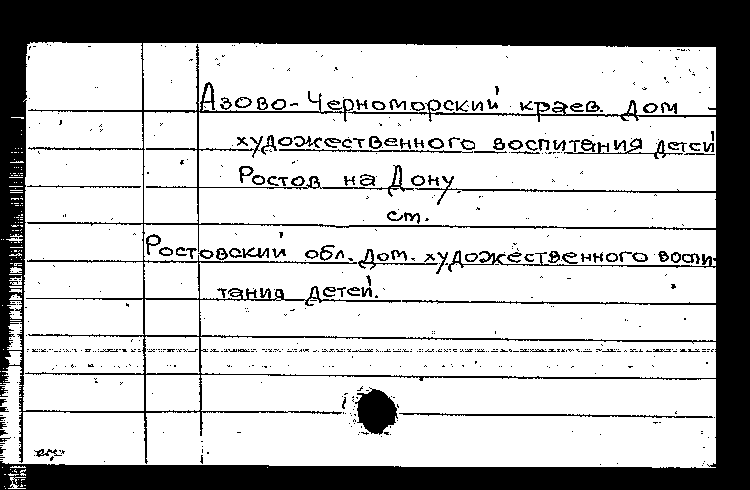 Азово-Черноморский краев. дом
художественного воспитания детей
Ростов на Дону
см.
Ростовский обл. дом. художественного воспи-
тания детей.